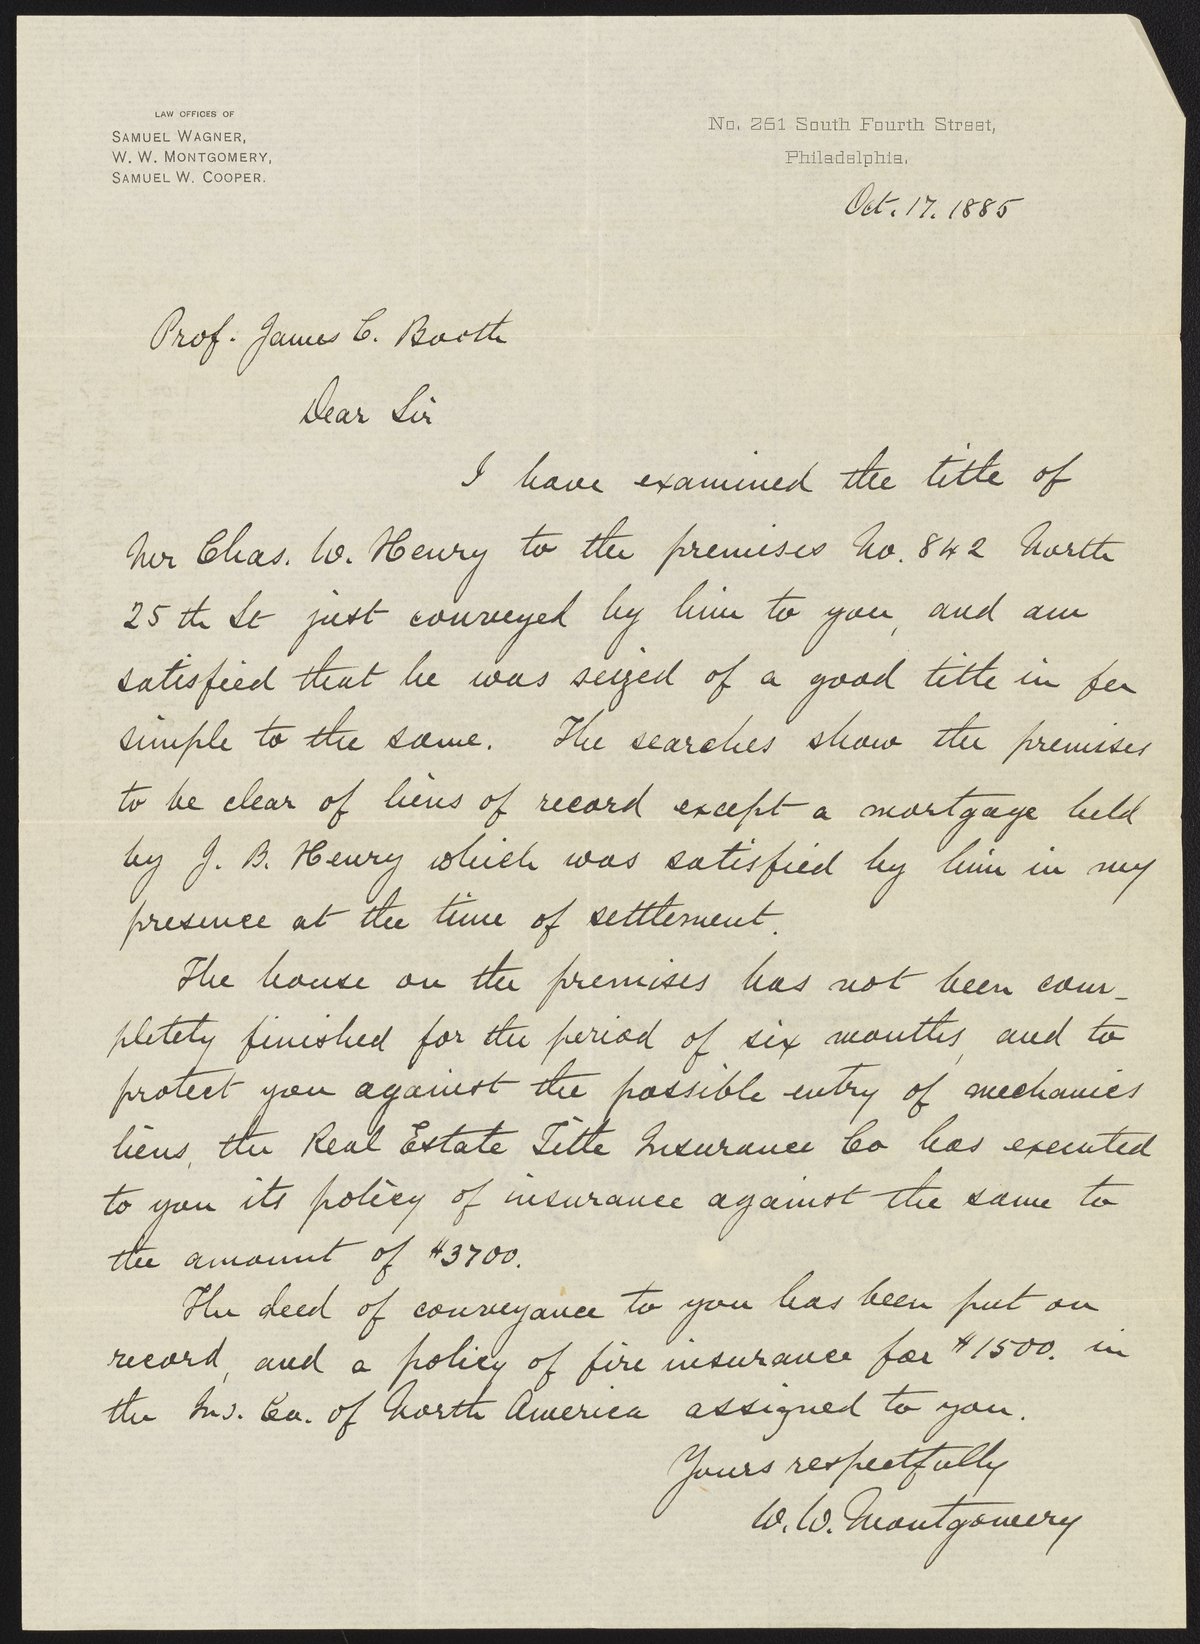 LAW OFFICES OF
SAMUEL WAGNER,
W. W. MONTGOMERY,
SAMUEL W. COOPER.
No. 251 South Fourth Street,
Philadelphia.
Oct. 17. 1885
Prof. James C. Booth
Dear Sir
I have examined the title of
Mr Chas. W. Henry to the premises No. 842 North
25th St just conveyed by him to you, and am
satisfied that he was seized of a good title in fee
simple to the same. The searches show the premises
to be clear of liens of record except a mortgage held
by J. B. Henry which was satisfied by him in my
presence at the time of settlement.
The house on the premises has not been com-
pletely finished for the period of six months, and to
protect you against the possible entry of mechanics
liens, the Real Estate Title Insurance Co has executed
to you its policy of insurance against the same to
the amount of $3700.
The deed of conveyance to you has been put on
record, and a policy of fire insurance for $1500. in
the Ins. Co. of North America assigned to you.
Yours respectfully
W. W. Montgomery